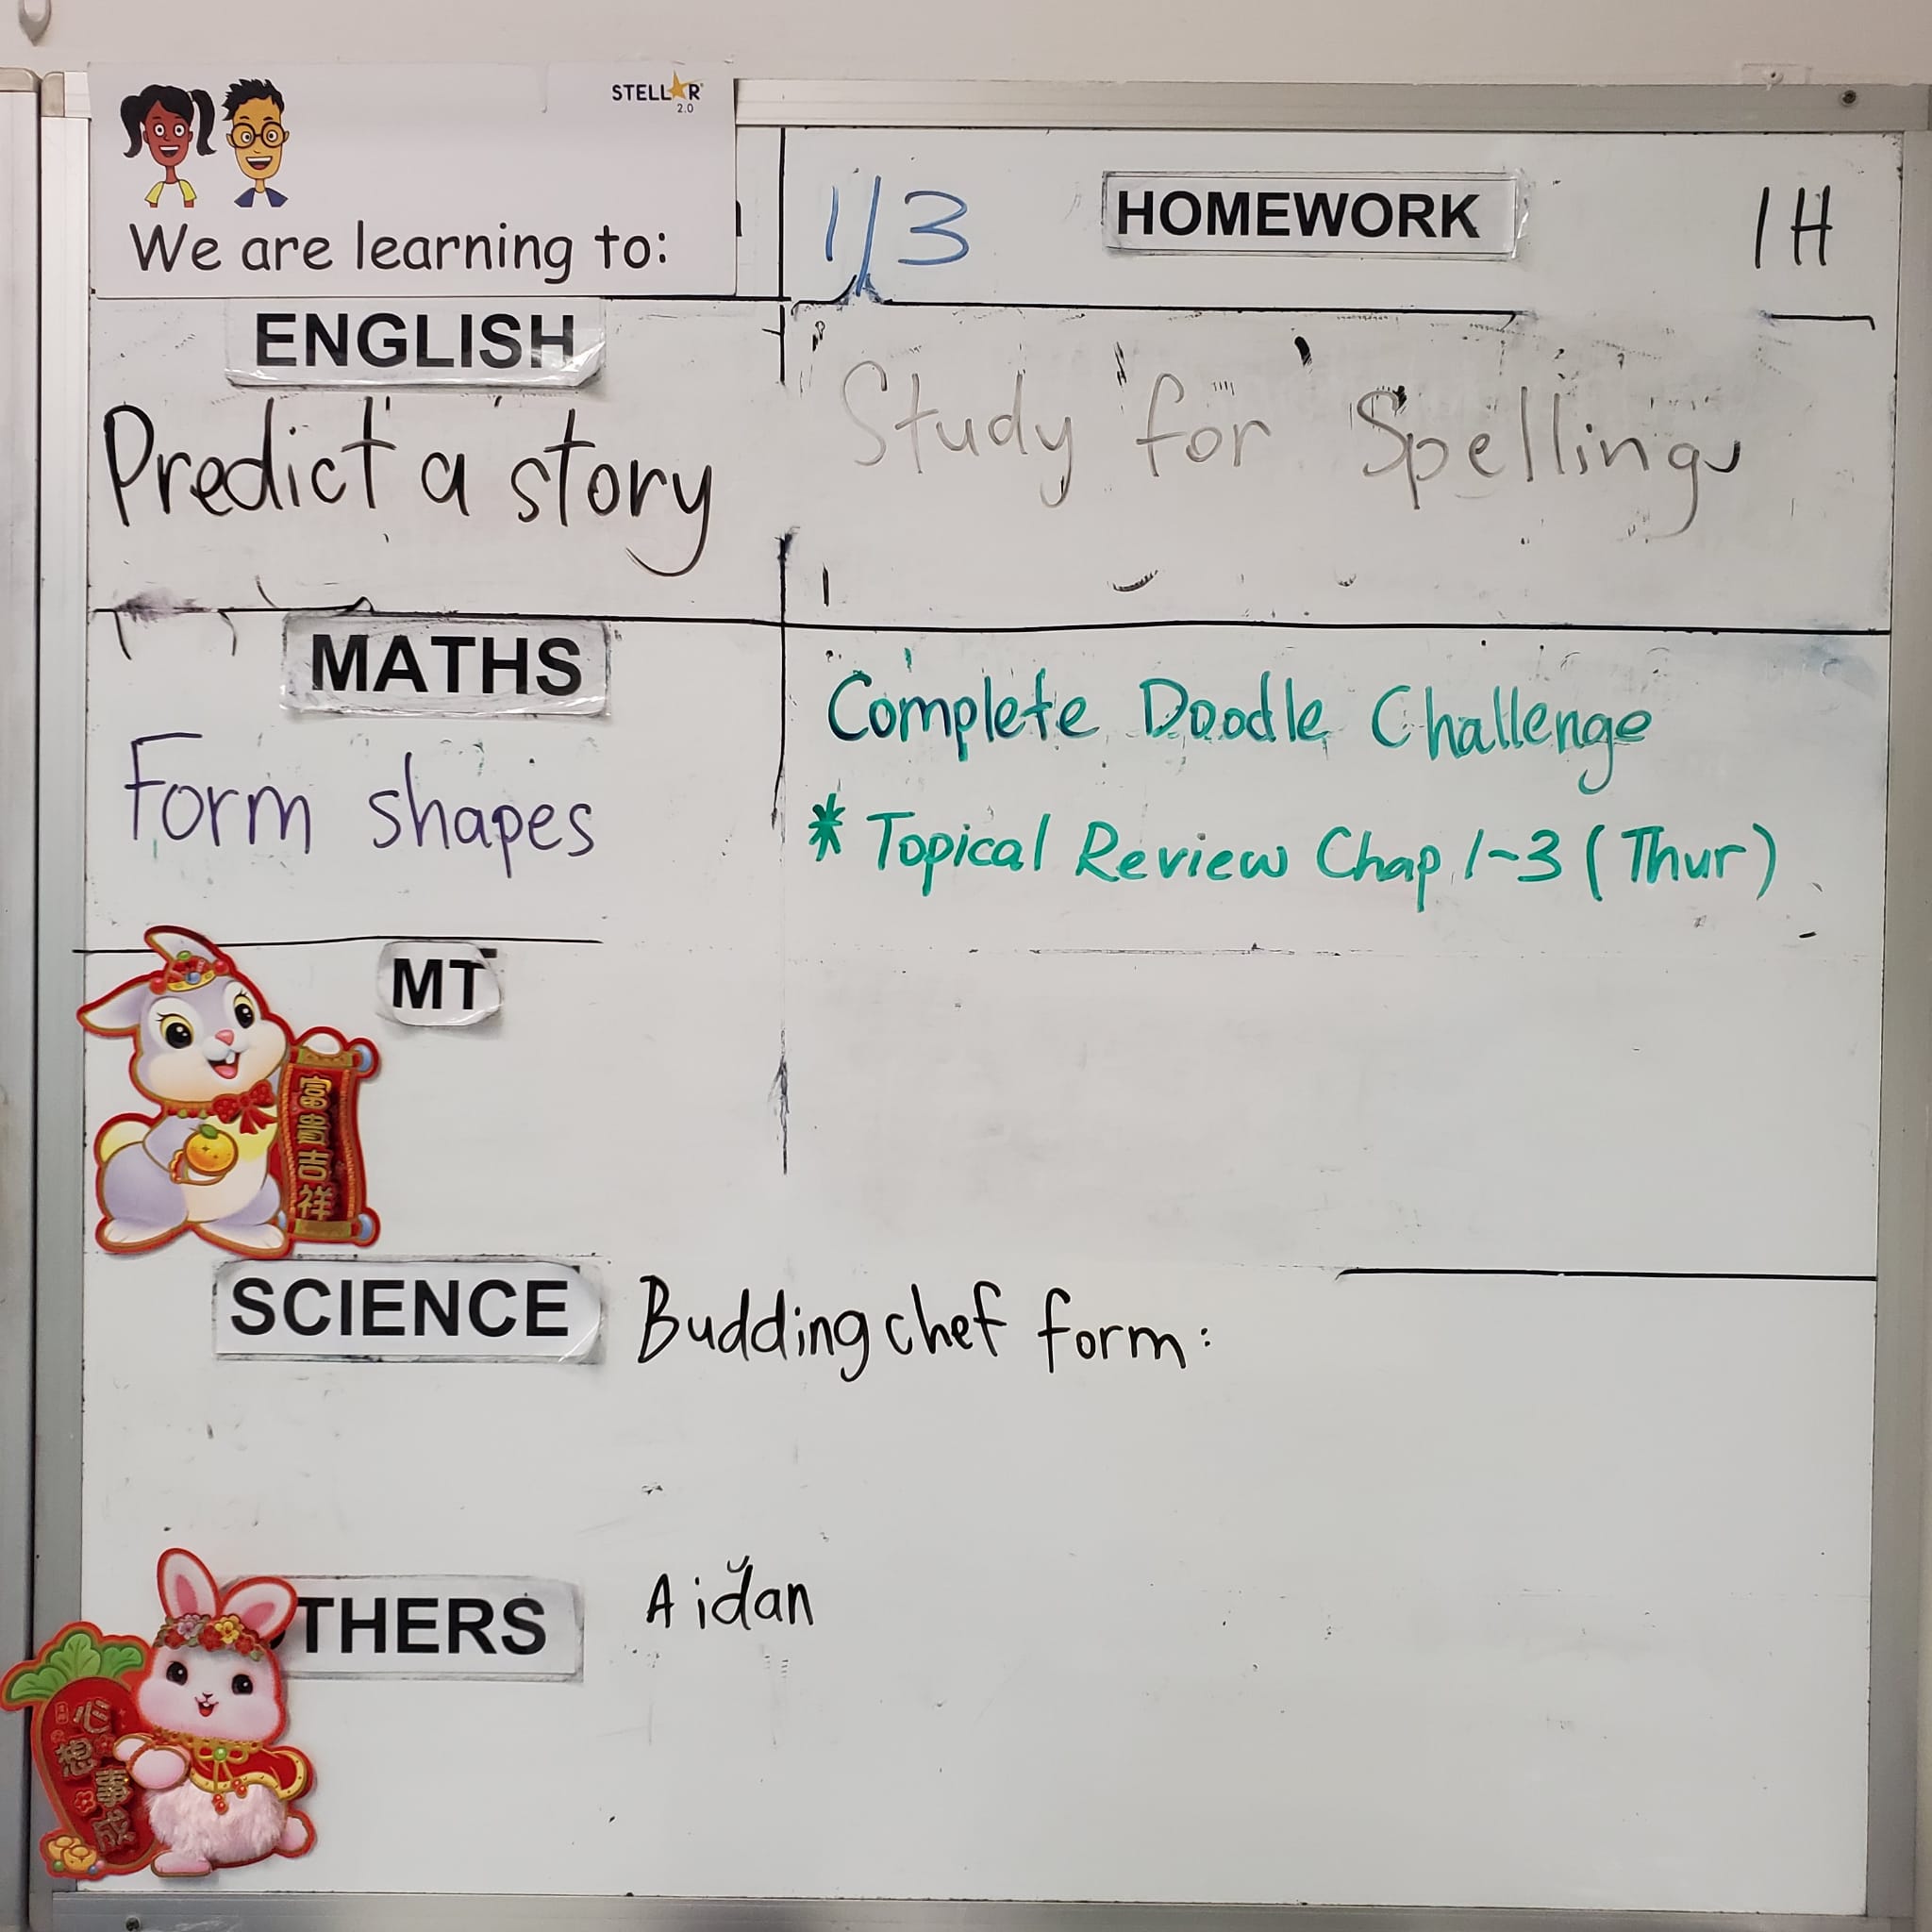 STELLAR
2.0
We are learning to:
1/3 HOMEWORK 1H
ENGLISH
Predict a story
Study for Spelling
MATHS
Form shapes
Complete Doodle Challenge
* Topical Review Chap 1~3 (Thur)
MT
富貴吉祥
SCIENCE
Budding chef form:
THERS
Aidan
心想事成